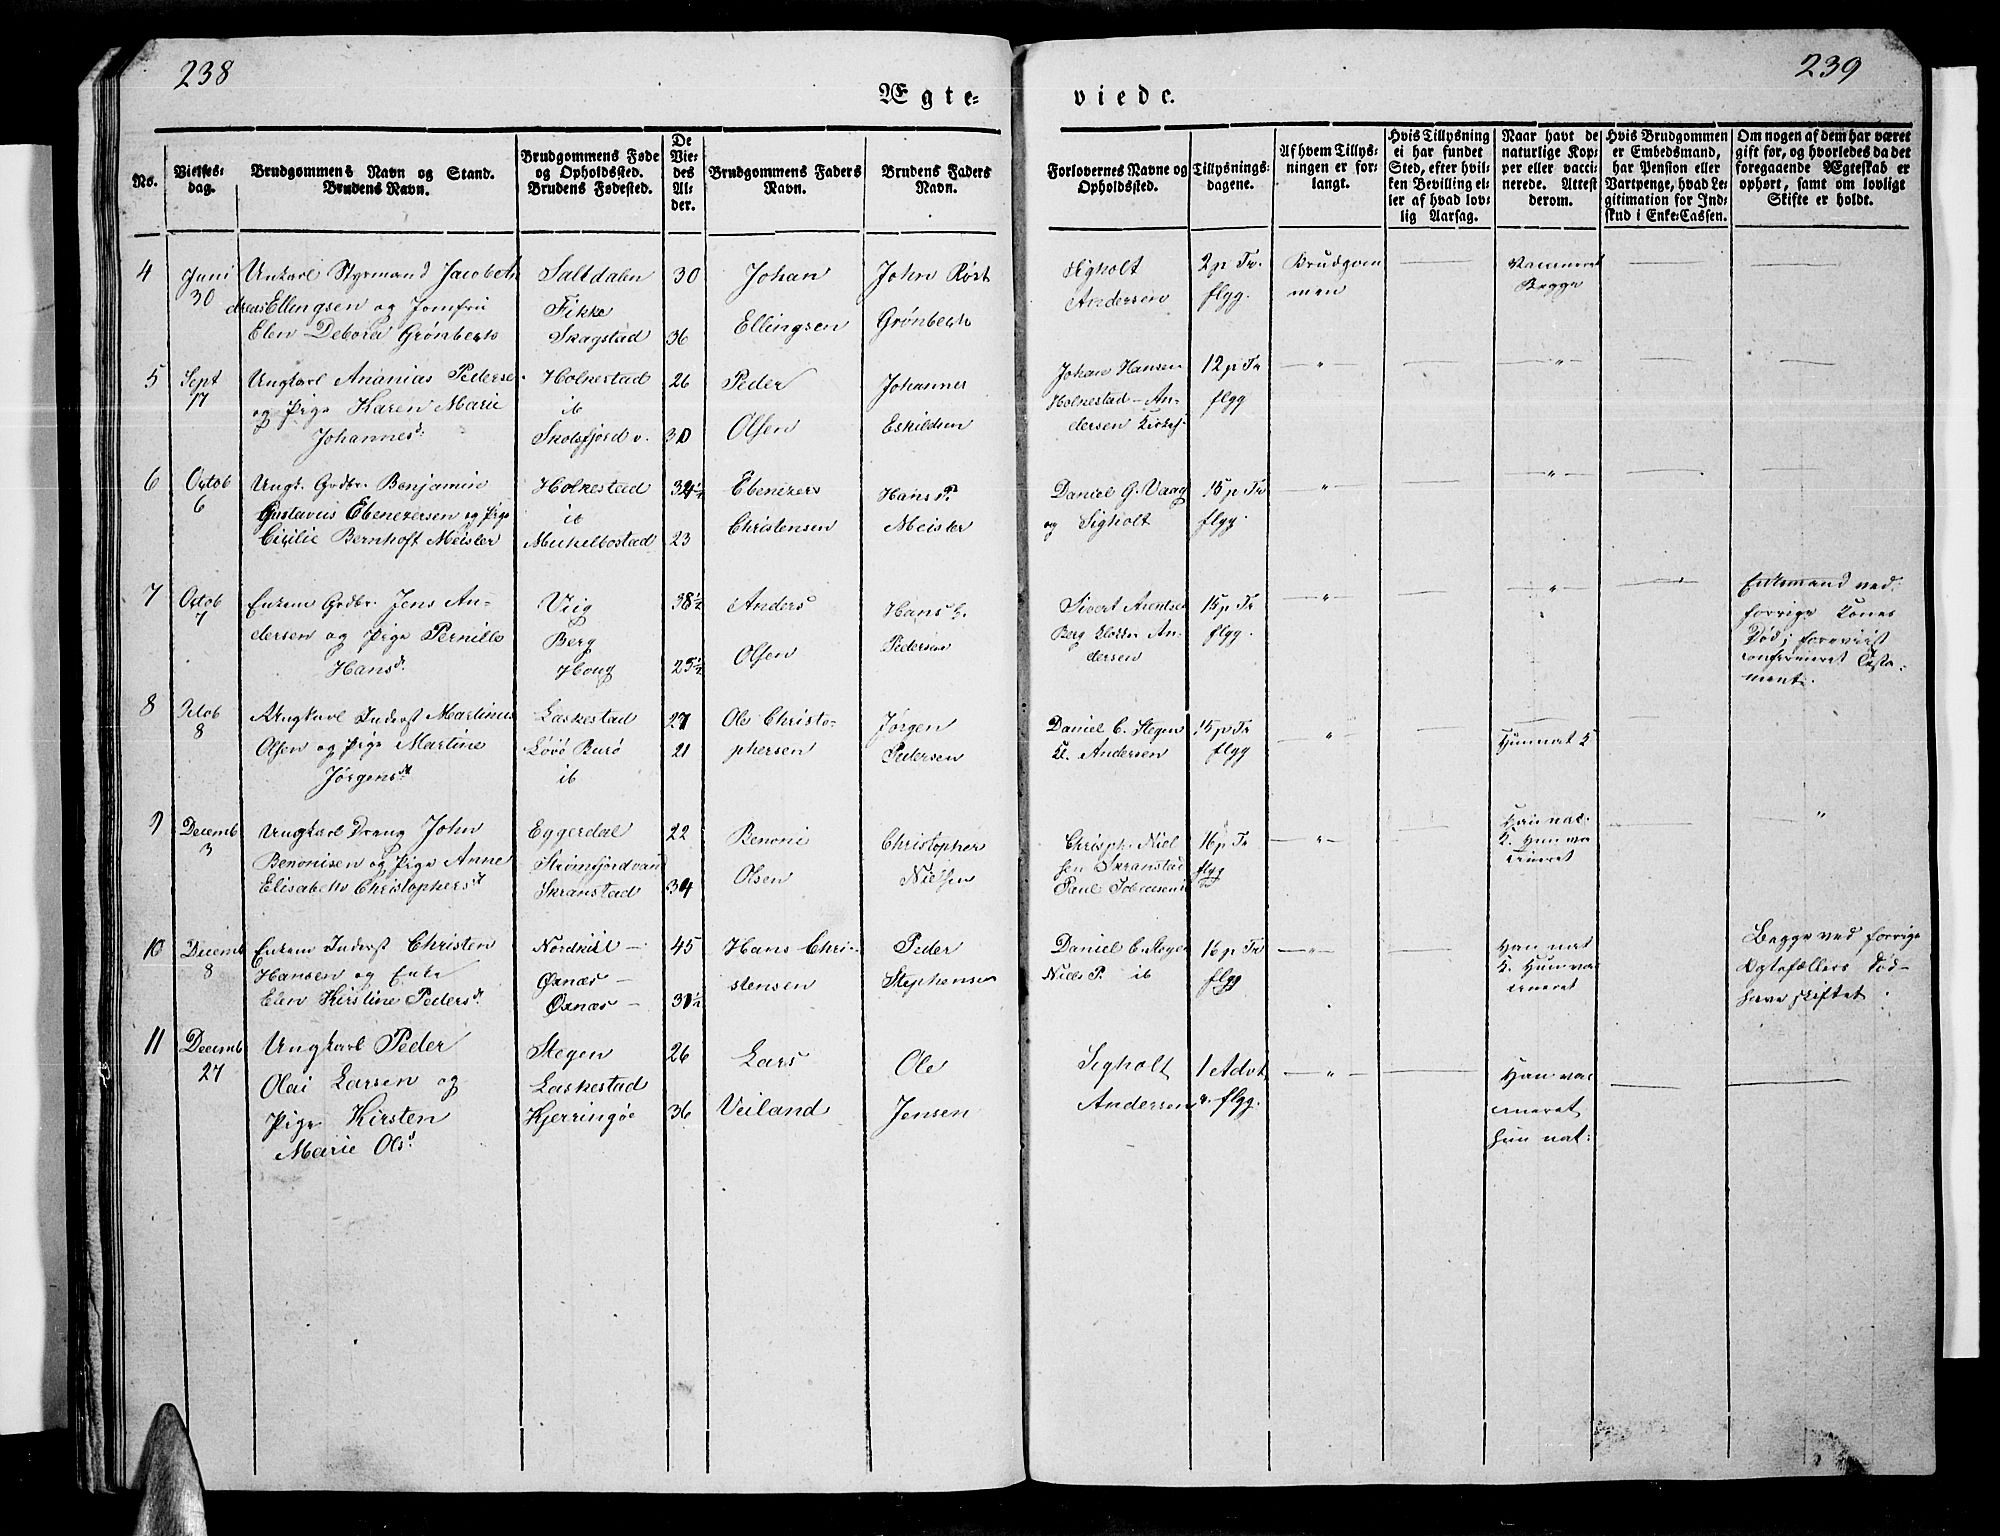 238
239
Ægte-
viede.
No.
Vielses-
dag.
Brudgommens Navn og Stand.
Brudens Navn.
Brudgommens Føde
og Opholdssted.
Brudens Fødested.
De
Vie-
des
Al-
der.
Brudgommens Faders
Navn.
Brudens Faders
Navn.
Forlovernes Navne og
Opholdssted.
Tillysnings-
dagene.
Af hvem Tillys-
ningen er for-
langt.
Hvis Tillysning
ei har fundet
Sted, efter hvil-
ken Bevilling el-
ler af hvad lov-
lig Aarsag.
Naar havt de
naturlige Kop-
per eller vacci-
nerede. Attest
derom.
Hvis Brudgommen
er Embedsmand,
har Pension eller
Vartpenge, hvad Le-
gitimation for Ind-
skud i Enke-Cassen.
Om nogen af dem har været
gift før, og hvorledes da det
foregaaende Ægteskab er
ophørt, samt om lovligt
Skifte er holdt.
4
Juni
30
Unkarl Styrmand Jacob
Ellingsen og Jomfru
Elen Debora Grønbech
Saltdalen
Skagstad
30
36
Johan
Ellingsen
John Røst
Grønbech
Sigholt
Andersen
2 p Tr.
flyg.
Brudgom
men
Begge
5
Sept
17
Ungkarl Ananias Pederse
og Pige Karen Marie
Johannesd.
Holkestad
ib
26
30
Peder
Olsen
Johannes
Eskildsen
Johan Hansen
Holkestad – An-
dersen
12 p Tr
flyg
6
Octob
6
Ungk. Grdbr. Benjamin
Gustavus Ebenezersen og Pige
Cicilie Bernhoft Meister
Holkestad
ib
Mickelbostad
23
Ebenezer
Christensen
Hans P.
Meister
Daniel G. Vaag
og Sigholt
15 p Tr
flyg.
7
Octob
7
Enkem Grdbr. Jens An-
dersen og Pige Pernille
Hansd.
Berg
Houg
38½
25½
Anders
Olsen
Hans
Pedersen
Sivert Arentse
Berg An-
dersen
15 p Tr
flyg.
Enkemand ved
forrige Kones
Død; foreviist
confirmeret Testa-
ment.
8
Octob
8
Ungkarl Inderst Martinus
Olsen og Pige Martine
Jørgensd.
Laskestad
Løvø Burø
ib
27
21
Ole Christo-
phersen
Jørgen
Pedersen
Daniel C. Stegen
Andersen
15 p Tr
flyg
9
Decemb
3
Ungkarl Dreng John
Benonisen og Pige Anne
Elisabeth Christophersd.
Eggerdal
Skranstad
22
34
Benoni
Olsen
Christopher
Nielsen
Christph. Niel
sen Skranstad
Paul
16 p Tr
flyg
Han nat.
K. Hun va
cineret
10
Decemb
8
Enkem Inderst Christen
Hansen og Enke
Elen Kirstine Pedersd.
Øxnæs –
Øxnæs –
45
31½
Hans Chri-
stensen
Peder
Stephensen
Daniel C Stegen
Niels P. ib
16 p Tr
flyg
Han nat
K. Hun vac
cineret
Begge ved forrige
Ægtefællers Død –
have skiftet.
11
Decemb
27
Ungkarl Peder
Olai Larsen og
Pige Kirsten
Marie Olsd.
Stegen
Laskestad
Kjerringøe
26
36
Lars
Veiland
Ole
Jensen
Sigholt
Andersen
1 Advt
flyg.
Han vac
cineret
hun nat: